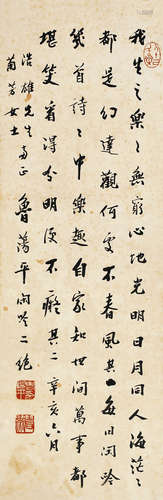 我生之樂樂無窮心地光明日月同人海茫茫
都是幻達觀何處不春風其一每日閒吟
幾首詩詩中樂趣自家知世間萬事都
堪笑看得分明便不癡其二辛亥六月
浩雄先生
女士
正
魯蕩平閒吟二絕